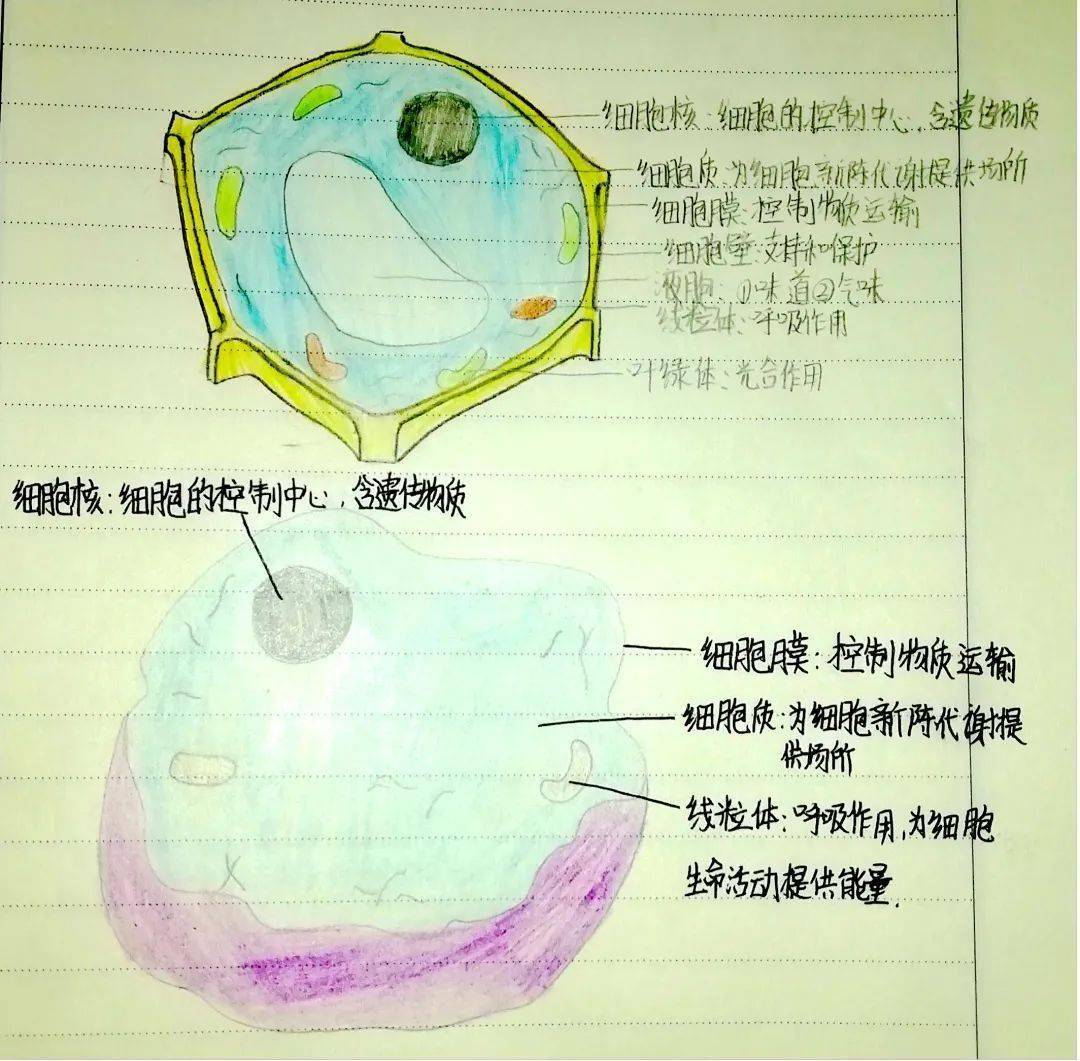 细胞核:细胞的控制中心,含遗传物质
细胞质:为细胞新陈代谢提供场所
细胞膜:控制物质运输
细胞壁:支持和保护
液胞:①味道②气味
线粒体:呼吸作用
叶绿体:光合作用
细胞核:细胞的控制中心,含遗传物质
细胞膜:控制物质运输
细胞质:为细胞新陈代谢提
供场所
线粒体:呼吸作用,为细胞
生命活动提供能量.